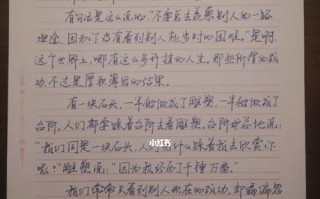 有句话是这么说的"不要总去羡慕别人的一路
坦途，因为你没有看到别人起步时的困难。"是啊，
这个世界上，哪有这么多开挂的人生，那些所谓的成
功，不过是厚积薄发的结果。
有一块石头，一半做成了雕塑，一半做成了
台阶。人们都踩着台阶去看雕塑，台阶
"我们同是一块石头，人们 什么踩着我去欣赏你
呢？"雕塑说："因为我经历了千锤万凿。"
小红书
我们常常只看到别人现在的成功，却